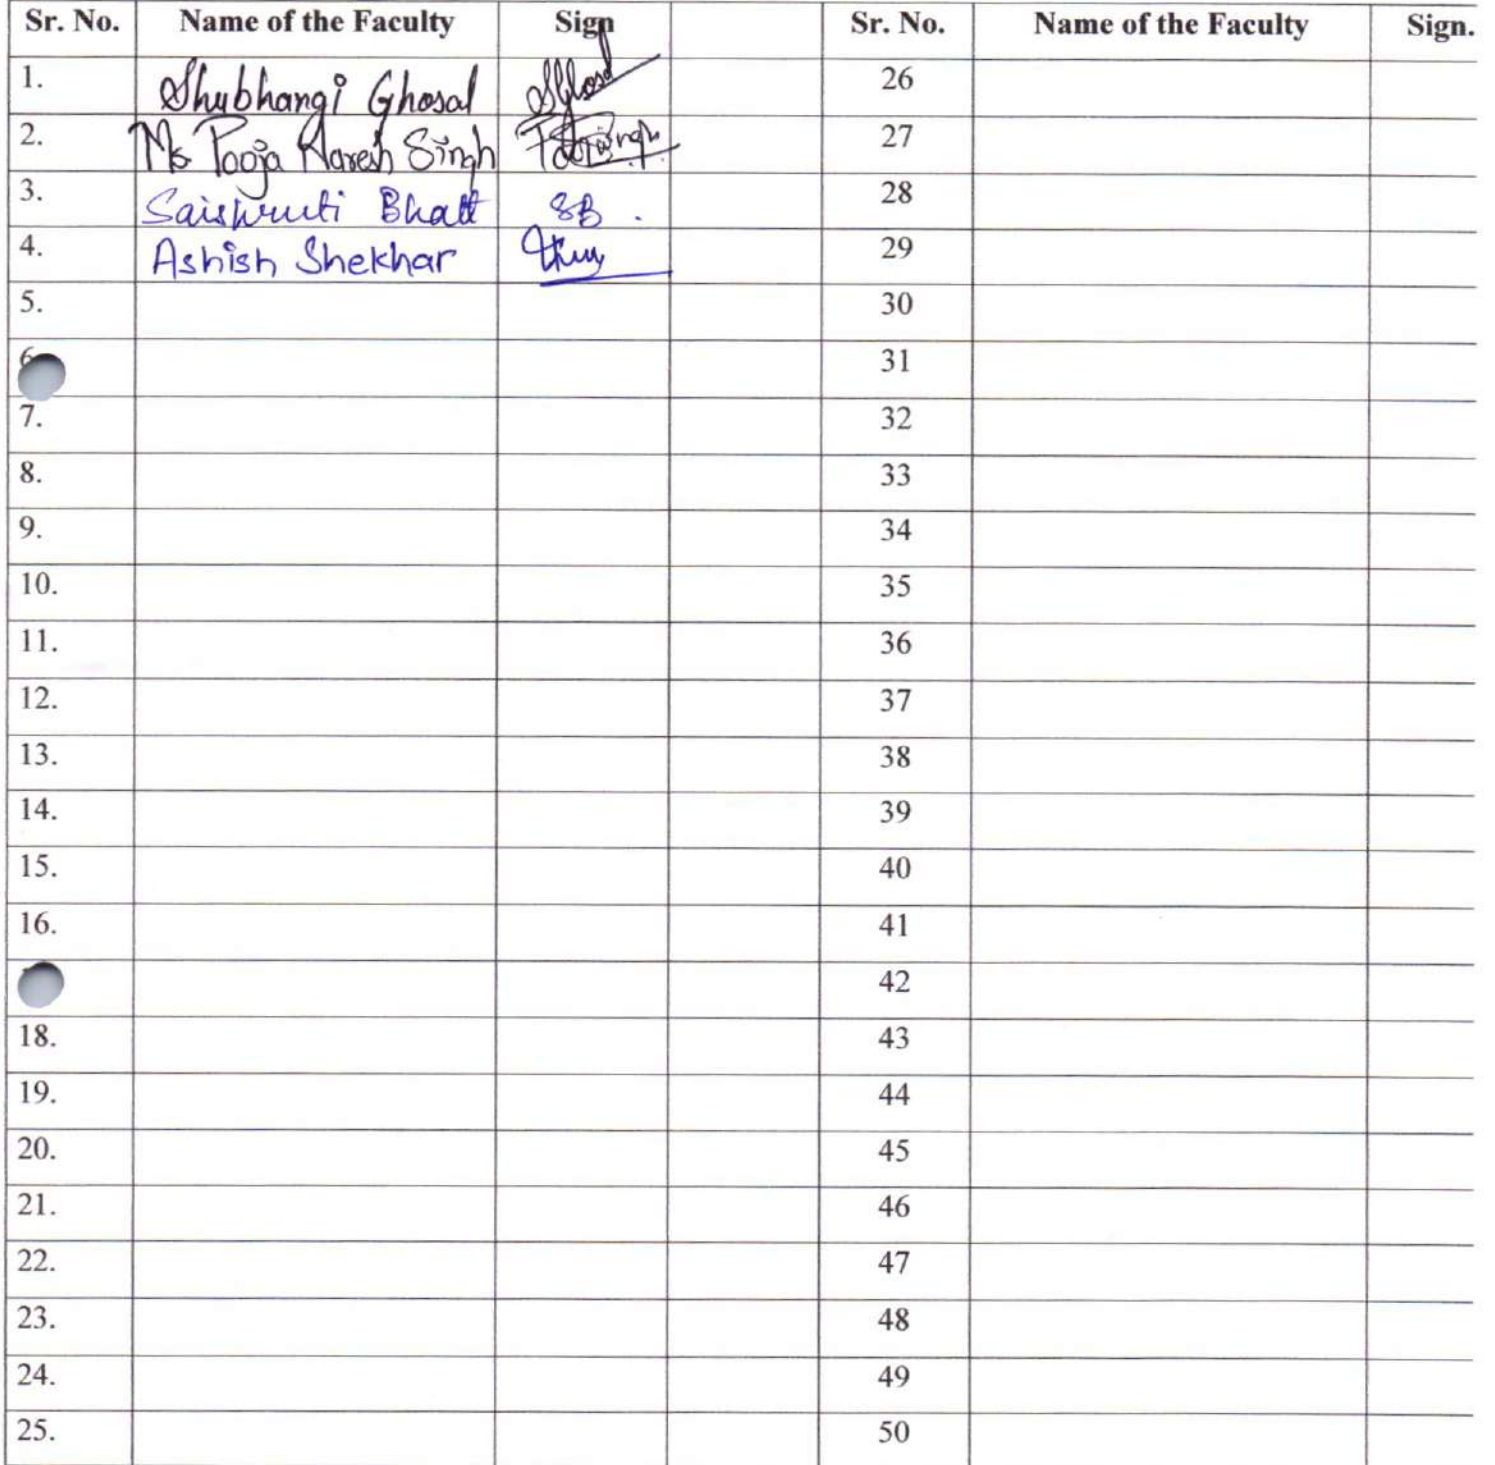 Sr. No. Name of the Faculty Sign Sr. No. Name of the Faculty Sign.
1. Shubhangi Ghosal SGhosal 26
2. Ms Pooja Haresh Singh 27
3. Saishruti Bhatt SB. 28
4. Ashish Shekhar 29
5. 30
6. 31
7. 32
8. 33
9. 34
10. 35
11. 36
12. 37
13. 38
14. 39
15. 40
16. 41
42
18. 43
19. 44
20. 45
21. 46
22. 47
23. 48
24. 49
25. 50